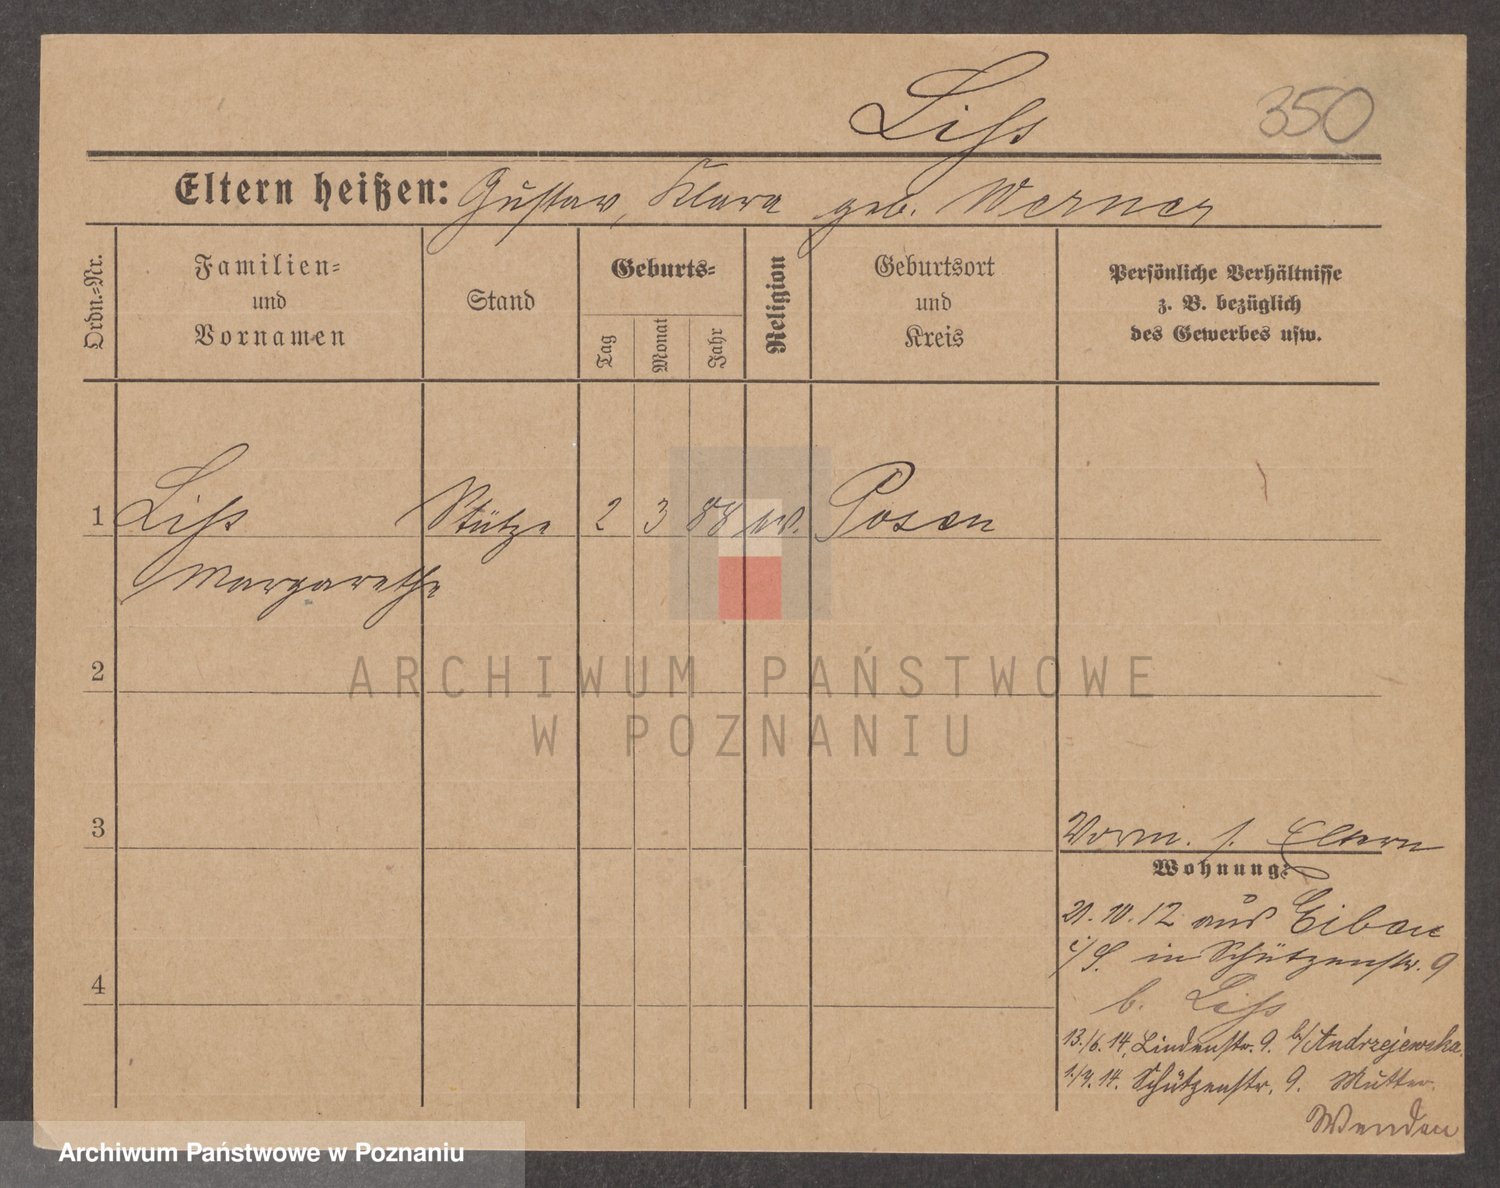 Liss
350
Eltern heißen: Gustav, Klara geb. Werner
Ordn.-Nr.
Familien-
und
Vornamen
Stand
Geburts-
Tag
Monat
Jahr
Religion
Geburtsort
und
Kreis
Persönliche Verhältnisse
z. B. bezüglich
des Gewerbes usw.
1 Liss Stütze 2 3 88 ev. Posen
Margarethe
2
3
Vorm. s. Eltern
Wohnung:
21.10.12 aus Eibau
i/S. in Schützenstr. 9
b. Liss
4
13./6.14. Lindenstr. 9. b/Andrzejewska.
Schützenstr. 9. Mutter.
Wenden
ARCHIWUM PAŃSTWOWE
W POZNANIU
Archiwum Państwowe w Poznaniu